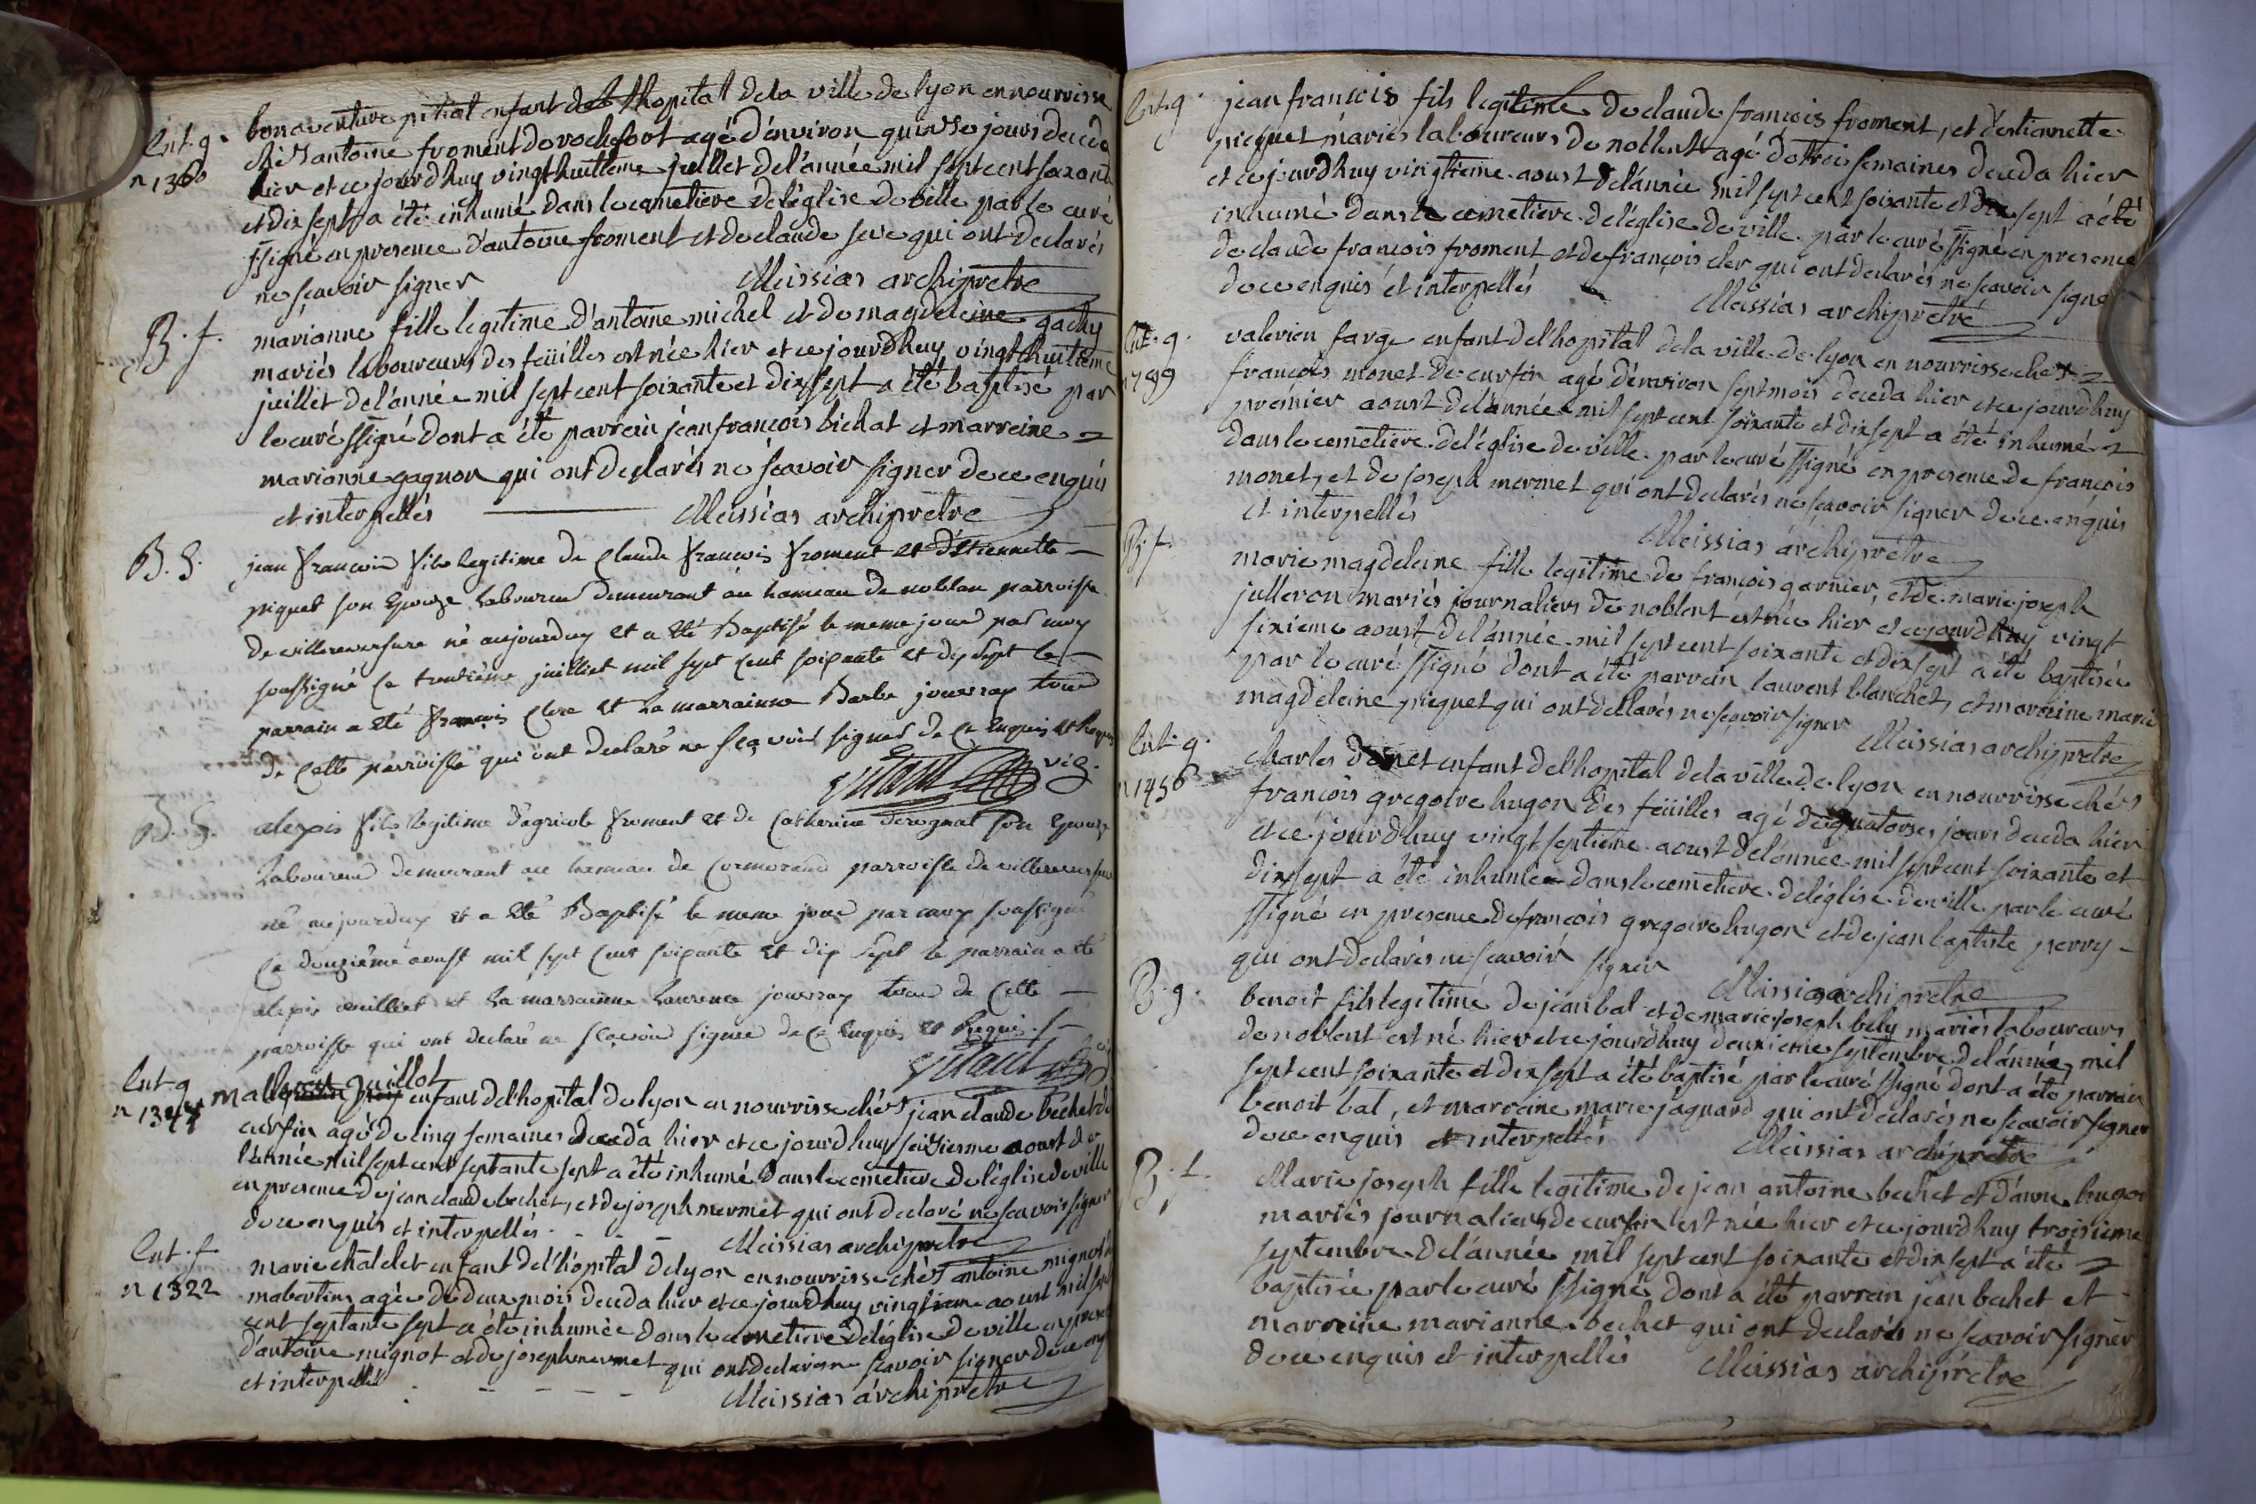 Ent. g.
n 1360
bonaventure pitiot enfant de lhopital dela ville de lyon en nourrisse
chés antoine froment de rochefort agé d'environ quinse jours deceda
hier et ce jourdhuy vingt huitieme juillet del'année mil sept cent soixante
et dix sept a été inhumé dans le cemetiere del'église de ville par le curé
ssigné en presence d'antoine froment et de claude seve qui ont declarés
ne sçavoir signer Meissias archiprêtre
B. f.
marianne fille legitime d'antoine michel et de magdeleine gachy
mariés laboureurs des feüilles est née hier et ce jourdhuy vingt huitieme
juillet del'année mil sept cent soixante et dix sept a été baptisé par
le curé ssigné dont a été parrein jean francois bichat et marreine
marianne gagnon qui ont declarés ne sçavoir signer de ce enquis
et interpellés Meissias archiprêtre
B. G.
jean francois fils legitime de Claude francois froment et d'Etiennette
piquet son Epouze Laboureur demeurant au hameau de noblan parroisse
de villereversure né aujourduy et a été Baptisé le meme jour par moy
soussigné ce trentième juilliet mil sept cent soixante et dix sept le
parrain a été francois Clere et La marrainne Barbe jouvray tous
de cette parroisse qui ont declaré ne sçavoir signer de ce Enquis et Requis
vitaut vic.
B. G.
alexis fils legitime d'agricole froment et de Catherine derognat son Epouze
Laboureur demeurant au hameau de Cormorand parroisse de villereversure
né aujourduy et a été Baptisé le meme jour par moy soussigné
ce douzième aoust mil sept cent soixante et dix sept le parrain a été
alexis et La marrainne Laurence jouvray tous de cette
parroisse qui ont declaré ne sçavoir signer de ce Enquis et Requis
vitaut vic
Ent. g
n 1344
guillot enfant del'hopital de lyon en nourrisse chés jean claude bechet de
curfin agé de cinq semaines deceda hier et ce jourdhuy seizieme aoust de
l'année mil sept cent septante sept a été inhumé dans le cemetiere de l'église de ville
en presence de jean claude bechet, et de joseph mermet qui ont declaré ne sçavoir signer
de ce enquis et interpellés. Meissias archiprêtre
Ent. f
n 1322
marie chatelet enfant del'hôpital de lyon en nourrisse chés antoine mignot de
mabertin agée de deux mois deceda hier et ce jourdhuy vingtieme aoust mil sept
cent septante sept a été inhumée dans le cemetiere del'église de ville en presence
d'antoine mignot et de joseph mermet qui ont declarés ne sçavoir signer de ce enquis
et interpellé Meissias archiprêtre
Ent. g.
jean francois fils legitime de claude francois froment, et d'estiannette
piequet mariés laboureurs de noblent agé de trois semaines deceda hier
et ce jourdhuy vingtieme aoust del'année mil sept cent soixante et dix sept a été
inhumé dans le cemetiere del'église de ville par le curé ssigné en presence
de claude francois froment et de françois cler qui ont declarés ne sçavoir signer
de ce enquis et interpellés Meissias archiprêtré
Ent. g.
n 799
valerien farge enfant del'hopital dela ville de lyon en nourrisse ches
françois monet de curfin agé d'environ sept mois deceda hier et ce jourdhuy
premier aoust del'année mil sept cent soixante et dix sept a été inhumé
dans le cemetiere del'église de ville par le curé ssigné en presence de françois
monet, et de joseph mermet qui ont declarés ne sçavoir signer de ce enquis
et interpellés Meissias archiprêtre
B. f.
marie magdeleine fille legitime de françois garnier, et de marie joseph
julleron mariés journaliers de noblent est née hier et ce jourdhuy vingt
sixieme aoust del'année mil sept cent soixante et dix sept a été baptisée
par le curé ssigné dont a été parrein laurent blanchet, et marreine marie
magdeleine piequet qui ont declarés ne sçavoir signer Meissias archiprêtre
Ent. g.
n 1456
Charles enfant del'hopital dela ville de lyon en nourrisse chés
françois gregoire hugon des feüilles agé de quatorse jours deceda hier
et ce jourdhuy vingt septieme aoust del'année mil sept cent soixante et
dix sept a été inhumé dans le cemetiere del'église de ville par le curé
ssigné en presence de francois gregoire hugon et de jean baptiste perry
qui ont declarés ne sçavoir signer Meissias archiprêtre
B. g.
benoit fils legitime de jean bal et de marie joseph bely mariés laboureurs
de noblent est né hier et ce jourdhuy deuxieme septembre del'année mil
sept cent soixante et dix sept a été baptisé par le curé ssigné dont a été parrein
benoit bal, et marreine marie jaquard qui ont declarés ne sçavoir signer
de ce enquis et interpellés Meissias archiprêtre
B. f.
Marie joseph fille legitime de jean antoine bechet et d'anne hugon
mariés journaliers de curfin est née hier et ce jourdhuy troisieme
septembre del'année mil sept cent soixante et dix sept a été
baptisée par le curé ssigné dont a été parrein jean bechet et
marreine marianne bechet qui ont declarés ne sçavoir signer
de ce enquis et interpellés Meissias archiprêtre